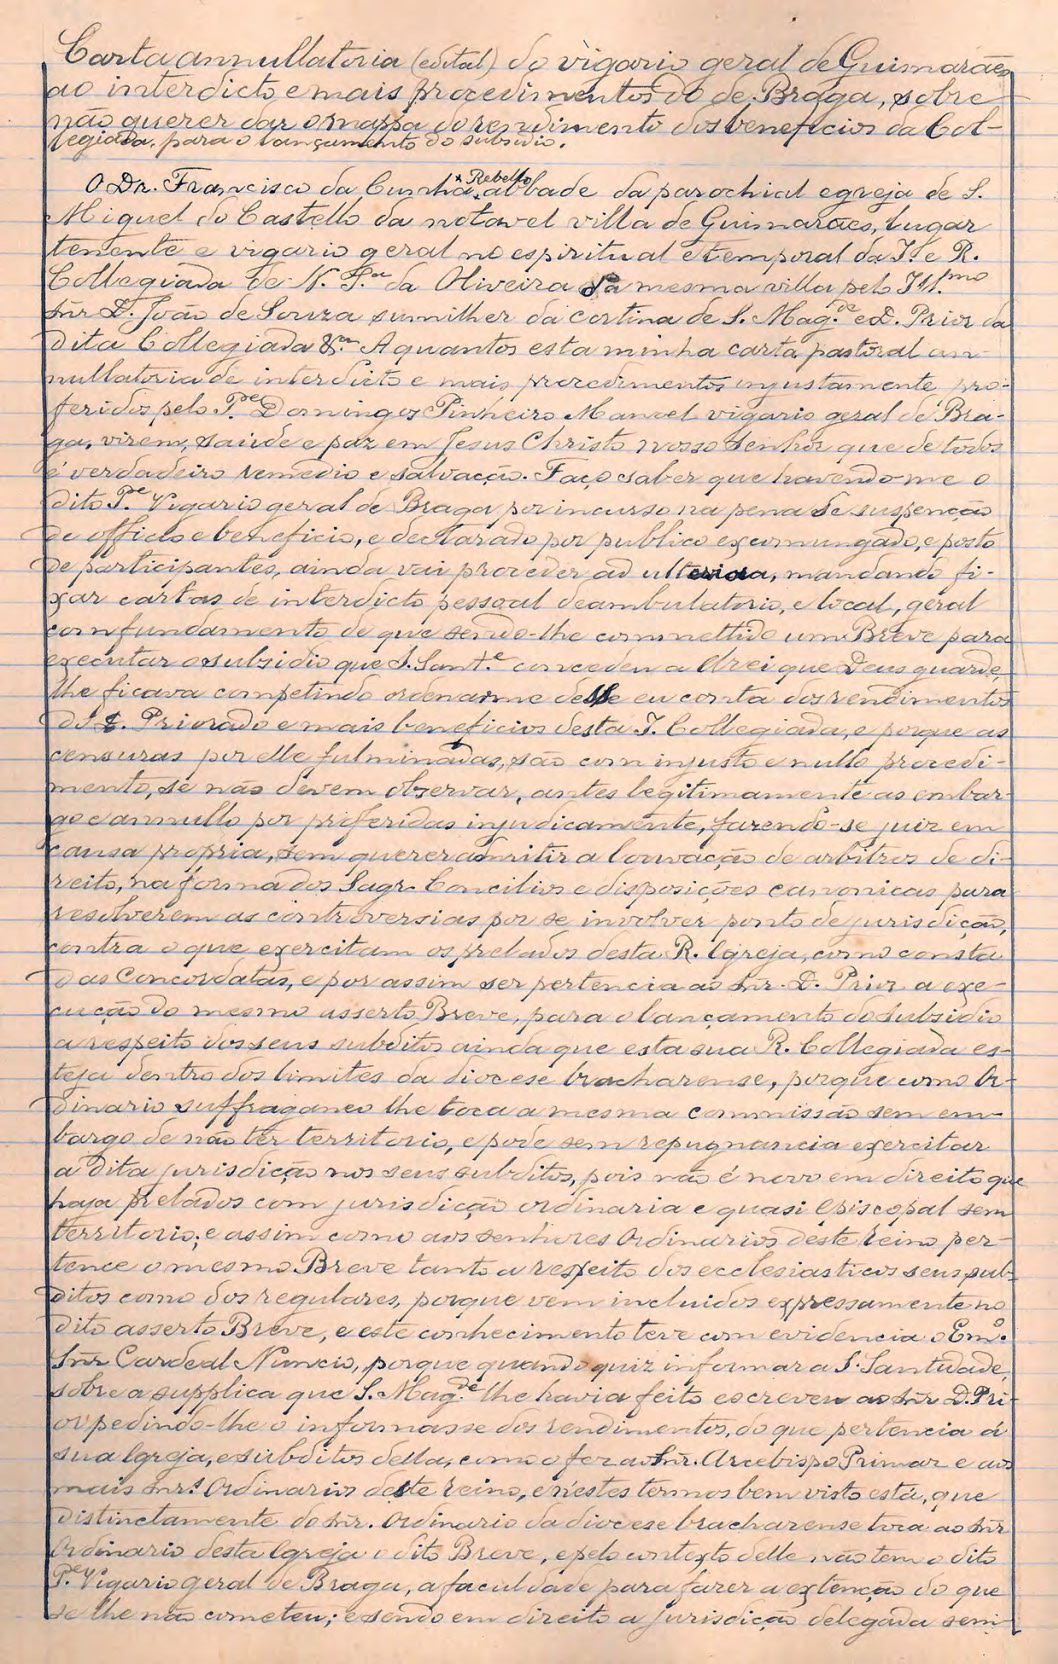 Carta annullatoria (edital) do vigario geral de Guimarães
ao interdicto e mais procedimentos do de Braga, sobre
não querer dar o mappa do rendimento dos beneficios da Col-
legiada, para o lançamento do subsidio.
O Dr. Francisco da Cunha Rebello, abbade da parochial egreja de S.
Miguel do Castello da notavel villa de Guimarães, lugar
tenente e vigario geral no espiritual e temporal da I. e R.
Collegiada de N. Sr.ª da Oliveira da mesma villa pelo Ill.mo
Snr. D. João de Souza sumilher da cortina de S. Mag.de e D. Prior da
dita Collegiada &.ª A quantos esta minha carta pastoral an-
nullatoria de interdicto e mais procedimentos injustamente pro-
feridos pelo P.e Domingos Pinheiro Manoel vigario geral de Bra-
ga, virem, saude e paz em Jesus Christo nosso Senhor que de todos
é verdadeiro remedio e salvação. Faço saber que havendo-me o
dito P.e Vigario geral de Braga por incurso na pena de suspenção
de officio e beneficio, e declarado por publico excomungado, e posto
de participantes, ainda vai proceder ad ulteriora, mandando fi-
xar cartas de interdicto pessoal deambulatorio, e local, geral
com fundamento de que sendo-lhe commettido um Breve para
executar o subsidio que S. Sant.e concedeu a Elrei que Deus guarde,
lhe ficava competindo ordenar-me desse eu conta dos rendimentos
do D. Priorado e mais beneficios desta I. Collegiada, e porque as
censuras por elle fulminadas, são com injusto e nullo procedi-
mento, se não devem observar, antes legitimamente as embar-
go e annullo por proferidas injudicamente, fazendo-se juiz em
causa propria, sem querer admitir a louvação de arbitros de di-
reito, na forma dos Sagr. Concilios e disposições canonicas para
resolverem as controversias por se involver ponto de jurisdição,
contra o que exercitam os prelados desta R. Igreja, como consta
das Concordatas, e por assim ser pertencia ao Snr. D. Prior a exe-
cução do mesmo asserto Breve, para o lançamento do subsidio
a respeito dos seus subditos ainda que esta sua R. Collegiada es-
teja dentro dos limites da diocese bracharense, porque como Or-
dinario suffraganeo lhe toca a mesma commissão sem em-
bargo de não ter territorio, e pode sem repugnancia exercitar
a dita jurisdição nos seus subditos, pois não é novo em direito que
haja prelados com jurisdição ordinaria e quasi episcopal sem
territorio; e assim como aos senhores Ordinarios deste reino per-
tence o mesmo Breve tanto a respeito dos ecclesiasticos seus sub-
ditos como dos regulares, porque vem incluidos expressamente no
dito asserto Breve, e este conhecimento teve com evidencia o Em.º
Snr. Cardeal Nuncio, porque quando quiz informar a S. Santidade,
sobre a supplica que S. Mag.de lhe havia feito escreveu ao Snr. D. Pri-
or pedindo-lhe o informasse dos rendimentos, do que pertencia á
sua Igreja, e subditos della, como o fez ao Snr. Arcebispo Primaz e aos
mais Snr.s Ordinarios deste reino, e n'estes termos bem visto está, que
distinctamente do Snr. Ordinario da diocese bracharense toca ao Snr
Ordinario desta Igreja o dito Breve, e pelo contexto delle, não tem o dito
P.e Vigario geral de Braga, a faculdade para fazer a extenção do que
se lhe não cometeu; e sendo em direito a jurisdição delegada sem-